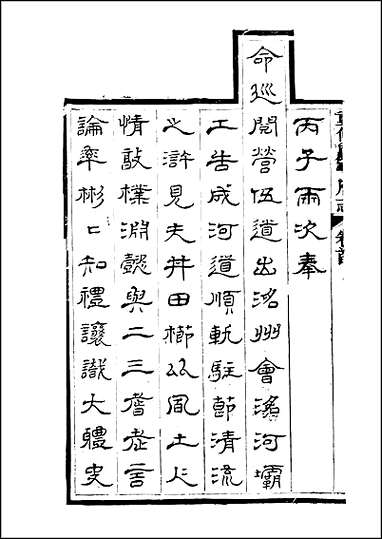 重修廣平府志 卷首
丙子兩次奉
命巡閱營伍道出洺州會滏河壩
工告成河道順軌駐節清流
之滸見夫井田櫛比風土人
情敦樸淵懿與二三耆老言
論率彬〻知禮讓識大體史